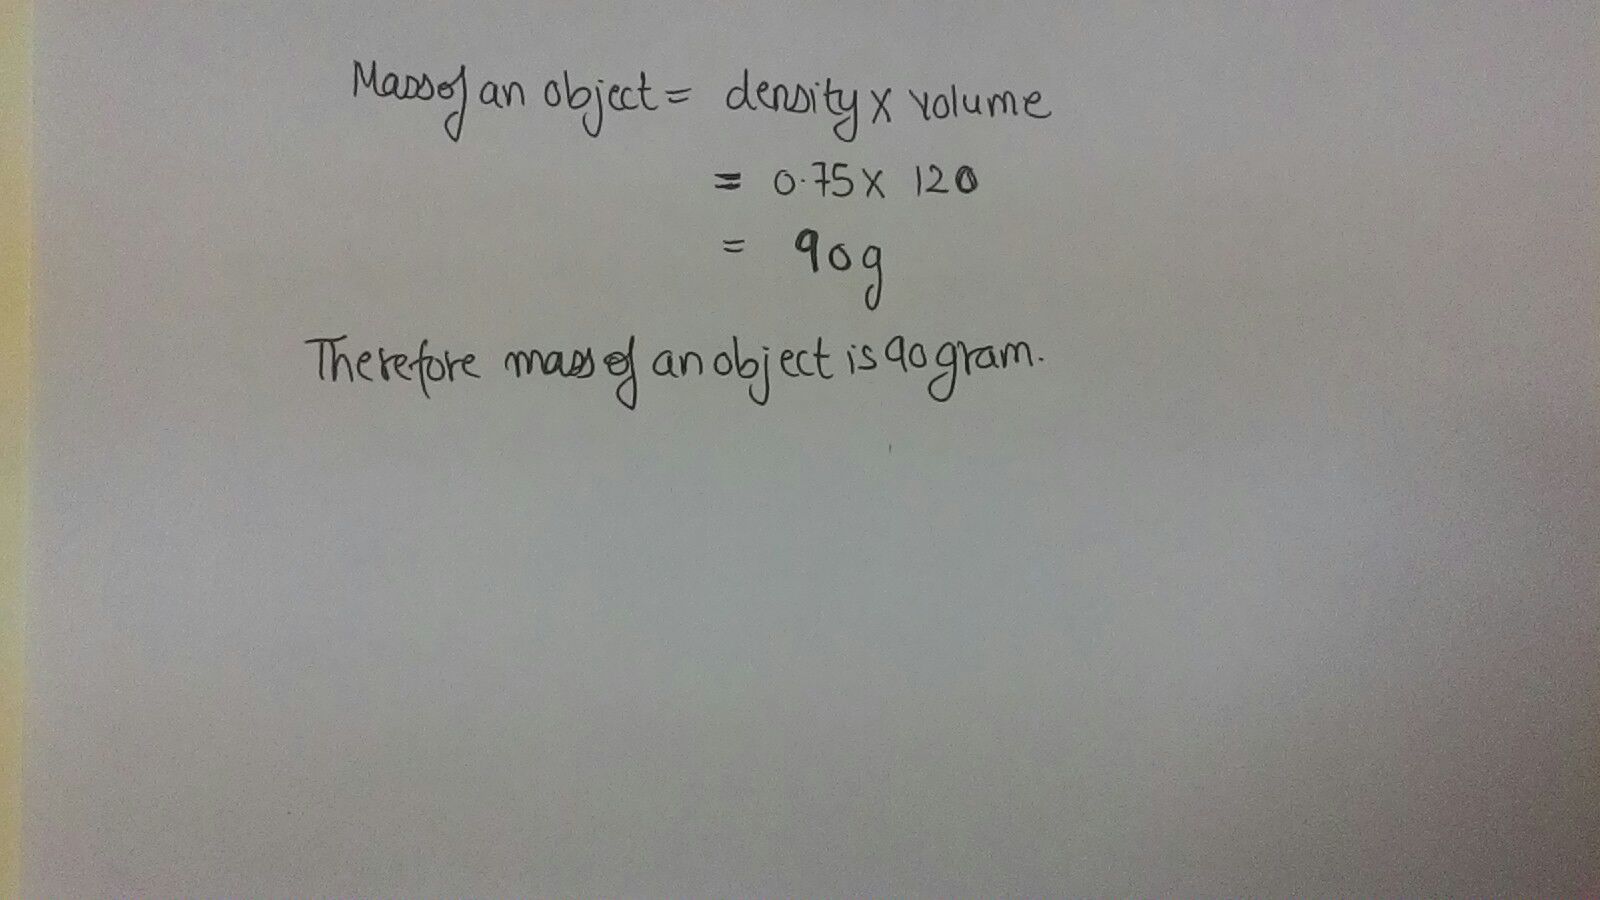 Mass of an object = density x volume
= 0.75 x 120
= 90g
Therefore mass of an object is 90 gram.